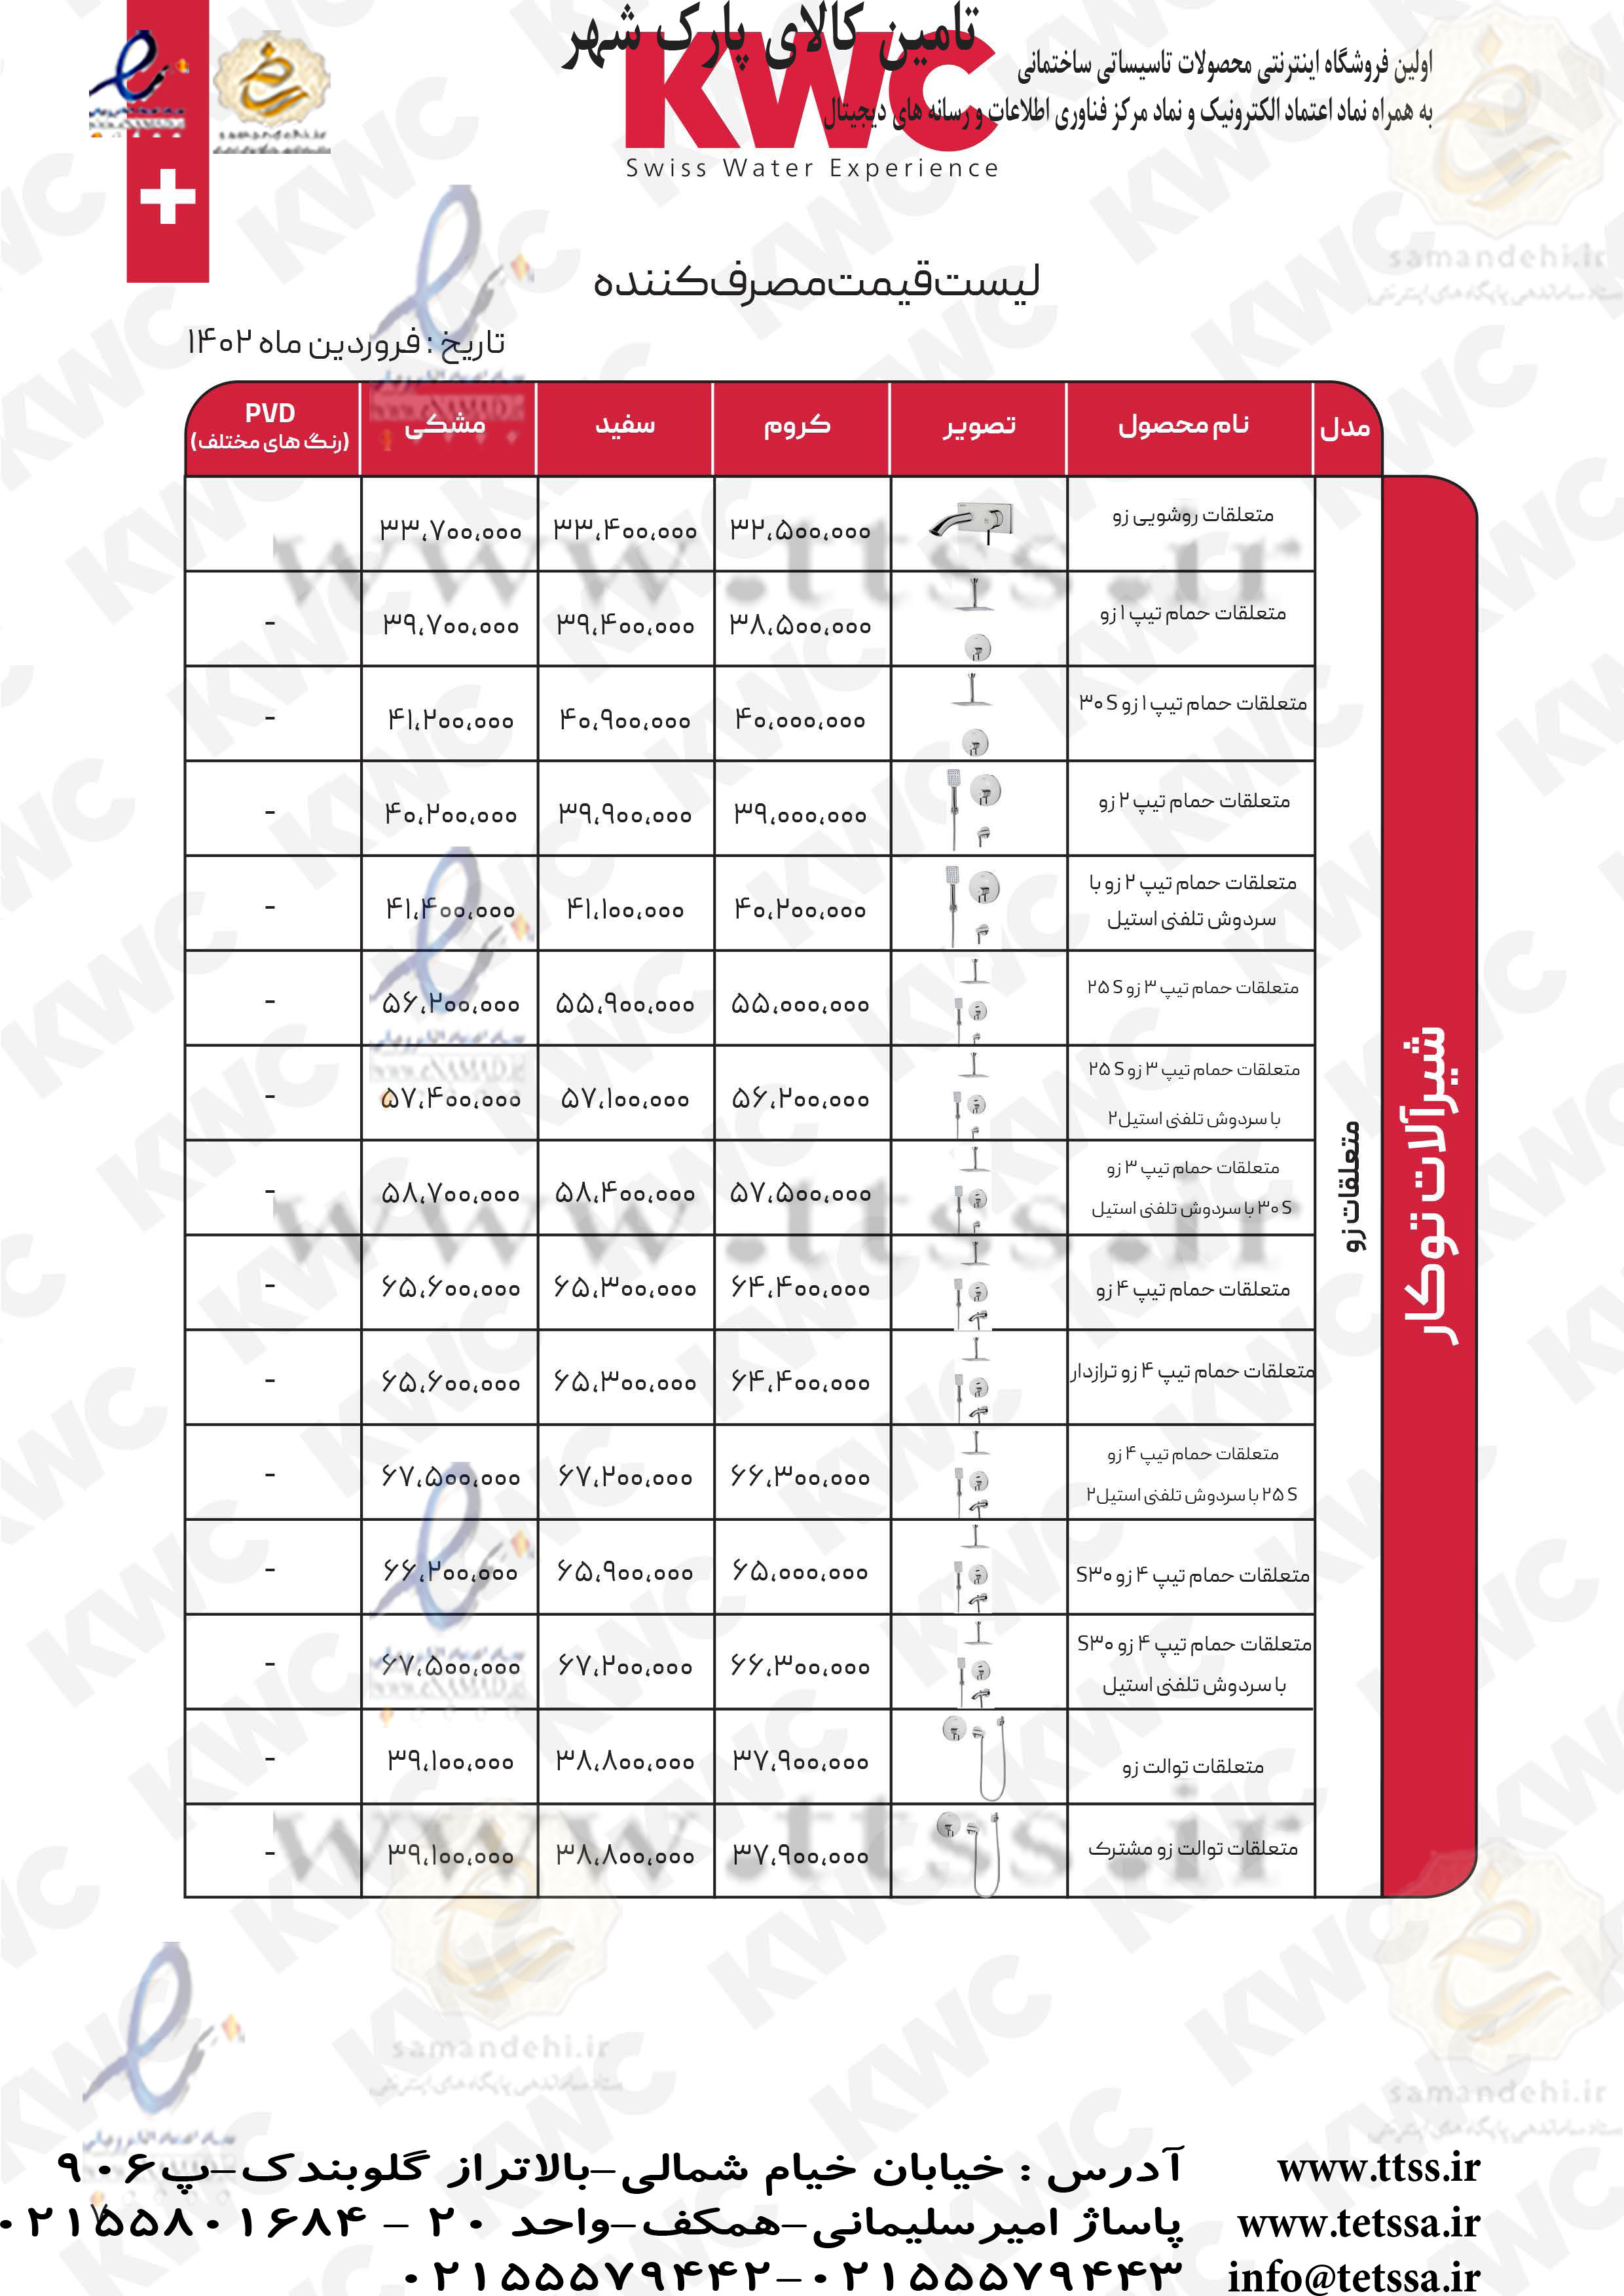 تامین کالای پارک شهر
KWC
Swiss Water Experience
اولین فروشگاه اینترنتی محصولات تاسیساتی ساختمانی
به همراه نماد اعتماد الکترونیک و نماد مرکز فناوری اطلاعات و رسانه های دیجیتال
samandehi.ir
لیست قیمت مصرف کننده
تاریخ : فروردین ماه ۱۴۰۲
مدل نام محصول تصویر کروم سفید مشکی PVD
(رنگ های مختلف)
شیرآلات توکار
متعلقات زو
متعلقات روشویی زو ۳۲،۵۰۰،۰۰۰ ۳۳،۴۰۰،۰۰۰ ۳۳،۷۰۰،۰۰۰
متعلقات حمام تیپ ۱ زو ۳۸،۵۰۰،۰۰۰ ۳۹،۴۰۰،۰۰۰ ۳۹،۷۰۰،۰۰۰ -
متعلقات حمام تیپ ۱ زو ۳۰ S ۴۰،۰۰۰،۰۰۰ ۴۰،۹۰۰،۰۰۰ ۴۱،۲۰۰،۰۰۰ -
متعلقات حمام تیپ ۲ زو ۳۹،۰۰۰،۰۰۰ ۳۹،۹۰۰،۰۰۰ ۴۰،۲۰۰،۰۰۰ -
متعلقات حمام تیپ ۲ زو با
سردوش تلفنی استیل ۴۰،۲۰۰،۰۰۰ ۴۱،۱۰۰،۰۰۰ ۴۱،۴۰۰،۰۰۰ -
متعلقات حمام تیپ ۳ زو ۲۵ S ۵۵،۰۰۰،۰۰۰ ۵۵،۹۰۰،۰۰۰ ۵۶،۲۰۰،۰۰۰ -
متعلقات حمام تیپ ۳ زو ۲۵ S
با سردوش تلفنی استیل۲ ۵۶،۲۰۰،۰۰۰ ۵۷،۱۰۰،۰۰۰ ۵۷،۴۰۰،۰۰۰ -
متعلقات حمام تیپ ۳ زو
۳۰ S با سردوش تلفنی استیل ۵۷،۵۰۰،۰۰۰ ۵۸،۴۰۰،۰۰۰ ۵۸،۷۰۰،۰۰۰ -
متعلقات حمام تیپ ۴ زو ۶۴،۴۰۰،۰۰۰ ۶۵،۳۰۰،۰۰۰ ۶۵،۶۰۰،۰۰۰ -
متعلقات حمام تیپ ۴ زو ترازدار ۶۴،۴۰۰،۰۰۰ ۶۵،۳۰۰،۰۰۰ ۶۵،۶۰۰،۰۰۰ -
متعلقات حمام تیپ ۴ زو
۲۵ S با سردوش تلفنی استیل۲ ۶۶،۳۰۰،۰۰۰ ۶۷،۲۰۰،۰۰۰ ۶۷،۵۰۰،۰۰۰ -
متعلقات حمام تیپ ۴ زو S۳۰ ۶۵،۰۰۰،۰۰۰ ۶۵،۹۰۰،۰۰۰ ۶۶،۲۰۰،۰۰۰ -
متعلقات حمام تیپ ۴ زو S۳۰
با سردوش تلفنی استیل ۶۶،۳۰۰،۰۰۰ ۶۷،۲۰۰،۰۰۰ ۶۷،۵۰۰،۰۰۰ -
متعلقات توالت زو ۳۷،۹۰۰،۰۰۰ ۳۸،۸۰۰،۰۰۰ ۳۹،۱۰۰،۰۰۰ -
متعلقات توالت زو مشترک ۳۷،۹۰۰،۰۰۰ ۳۸،۸۰۰،۰۰۰ ۳۹،۱۰۰،۰۰۰ -
www.ttss.ir
آدرس : خیابان خیام شمالی-بالاتراز گلوبندک-پ۹۰۶
www.ttss.ir
پاساژ امیرسلیمانی-همکف-واحد ۲۰ - ۰۲۱۵۵۸۰۱۶۸۴
www.tetssa.ir
۰۲۱۵۵۵۷۹۴۴۲-۰۲۱۵۵۵۷۹۴۴۳
info@tetssa.ir